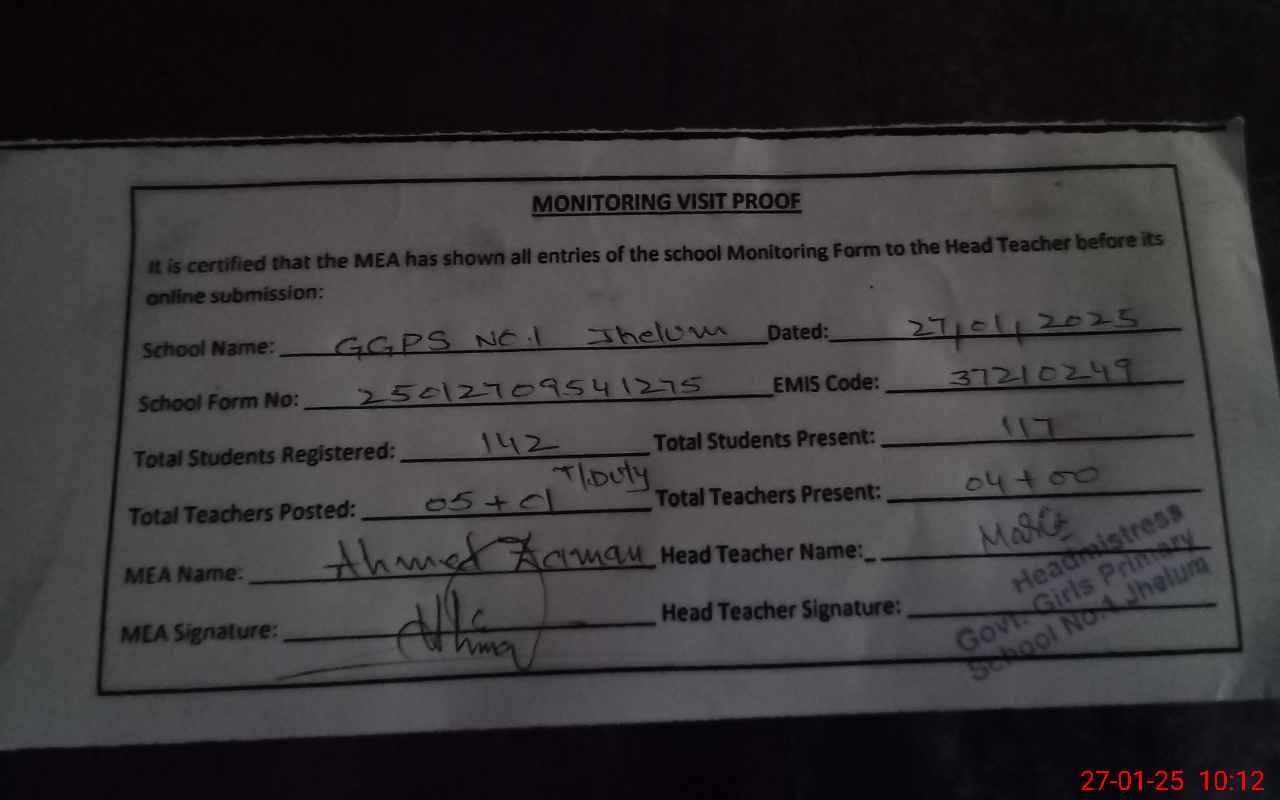 MONITORING VISIT PROOF
It is certified that the MEA has shown all entries of the school Monitoring Form to the Head Teacher before its
online submission:
School Name: GGPS NO.1 Jhelum Dated: 27,01,2025
School Form No: 25012709541275 EMIS Code: 37210249
Total Students Registered: 142 Total Students Present: 117
T/.Duty
Total Teachers Posted: 05+01 Total Teachers Present: 04+00
MEA Name: Ahmed Zaman Head Teacher Name:_
MEA Signature: Head Teacher Signature:
Headmistress
Govt. Girls Primary
School No.1 Jhelum
27-01-25 10:12